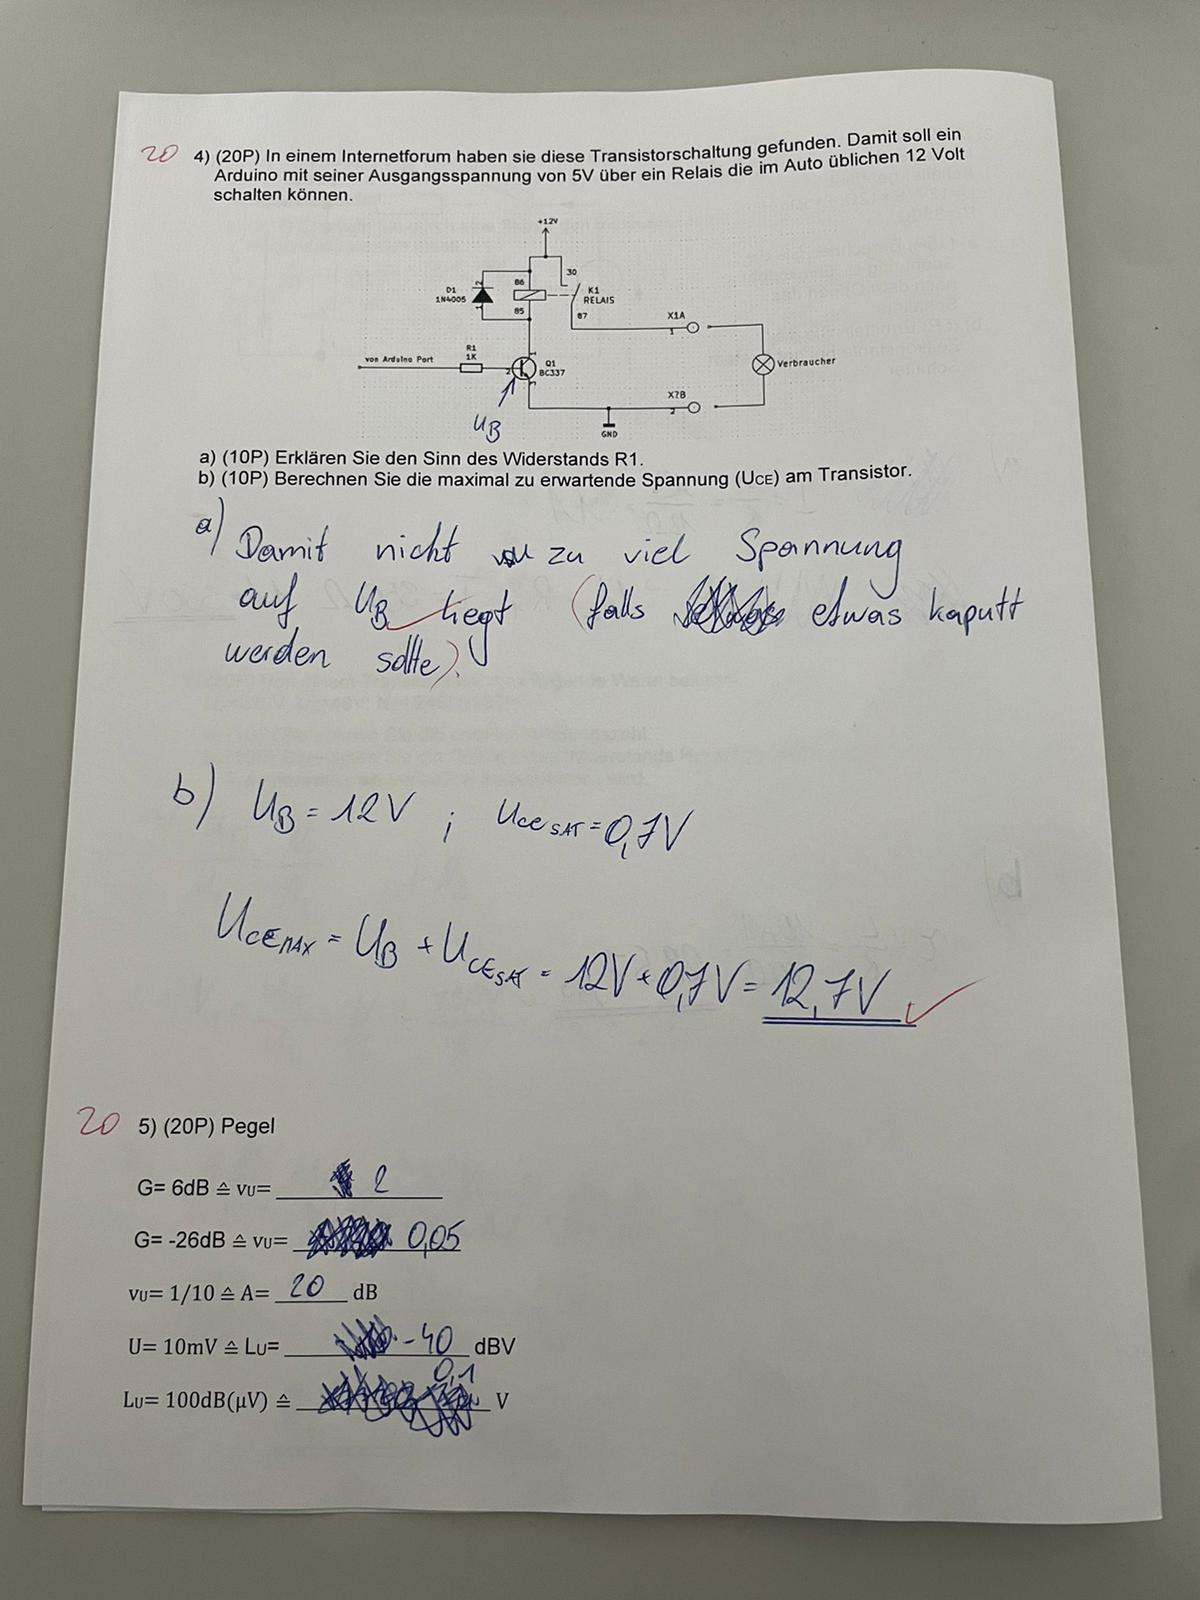 20 4) (20P) In einem Internetforum haben sie diese Transistorschaltung gefunden. Damit soll ein
Arduino mit seiner Ausgangsspannung von 5V über ein Relais die im Auto üblichen 12 Volt
schalten können.
+12V
30
86
D1
1N4005
2
1
K1
RELAIS
85
87
X1A
1
von Arduino Port
R1
1K
1
2
Q1
BC337
3
Verbraucher
X?B
2
UB
GND
a) (10P) Erklären Sie den Sinn des Widerstands R1.
b) (10P) Berechnen Sie die maximal zu erwartende Spannung (UCE) am Transistor.
a) Damit nicht zu viel Spannung
auf UB liegt (falls etwas kaputt
werden sollte).
b) UB = 12V ; UCE SAT = 0,7V
UCEMAX = UB + UCESAT = 12V + 0,7V = 12,7V ✓
20 5) (20P) Pegel
G= 6dB ≙ vU= 2
G= -26dB ≙ vU= 0,05
vU= 1/10 ≙ A= 20 dB
U= 10mV ≙ LU= -40 dBV
LU= 100dB(µV) ≙ 0,1 V